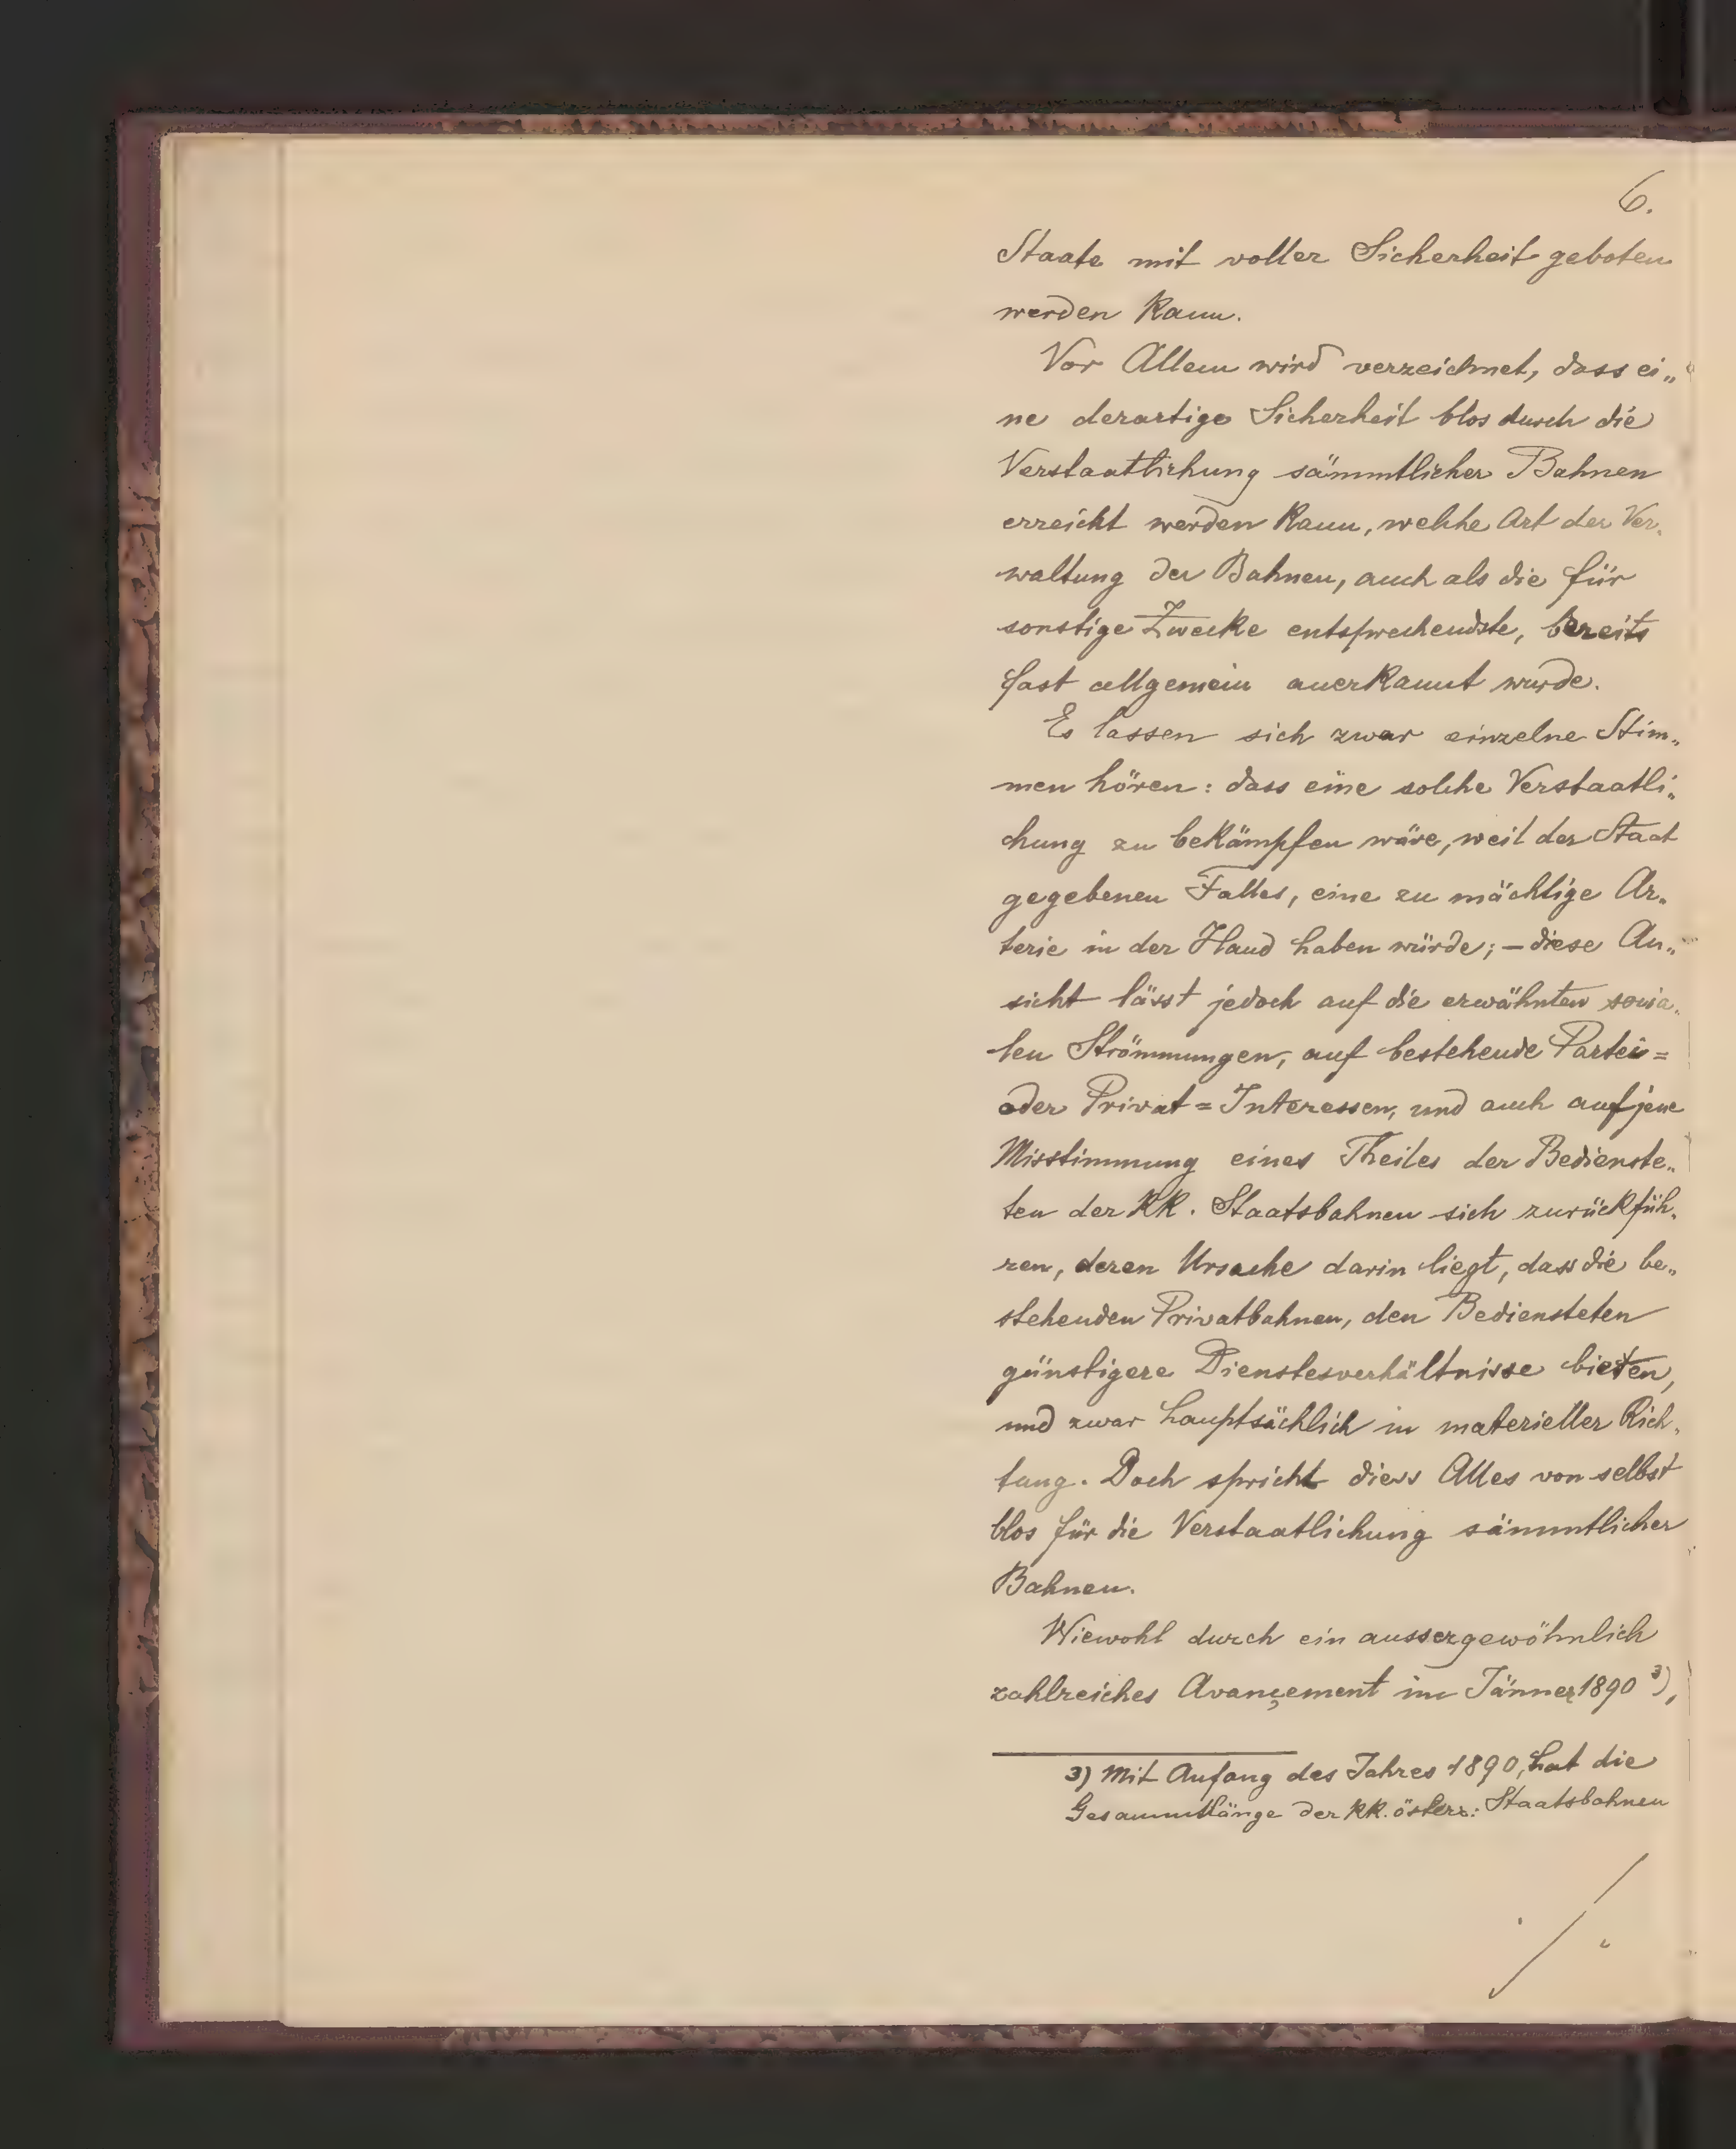 6.
Staate mit voller Sicherheit geboten
werden kann.
Vor Allem wird verzeichnet, dass ei„
ne derartige Sicherheit blos durch die
Verstaatlichung sämmtlicher Bahnen
erreicht werden kann, welche Art der Ver„
waltung der Bahnen, auch als die für
sonstige Zwecke entsprechendste, bereits
fast allgemein anerkannt wurde.
Es lassen sich zwar einzelne Stim„
men hören: dass eine solche Verstaatli„
chung zu bekämpfen wäre, weil der Staat
gegebenen Falles, eine zu mächtige Ar„
terie in der Hand haben würde; – diese An„
sicht lässt jedoch auf die erwähnten socia„
len Strömmungen, auf bestehende Partei=
oder Privat=Interessen, und auch auf jene
Misstimmung eines Theiles der Bedienste„
ten der kk. Staatsbahnen sich zurückfüh„
ren, deren Ursache darin liegt, dass die be„
stehenden Privatbahnen, den Bediensteten
günstigere Dienstesverhältnisse bieten,
und zwar hauptsächlich in materieller Rich„
tung. Doch spricht diess Alles von selbst
blos für die Verstaatlichung sämmtlicher
Bahnen.
Wiewohl durch ein aussergewöhnlich
zahlreiches Avançement im Jänner 1890 3),
3) Mit Anfang des Jahres 1890, hat die
Gesammtlänge der kk. österr: Staatsbahnen